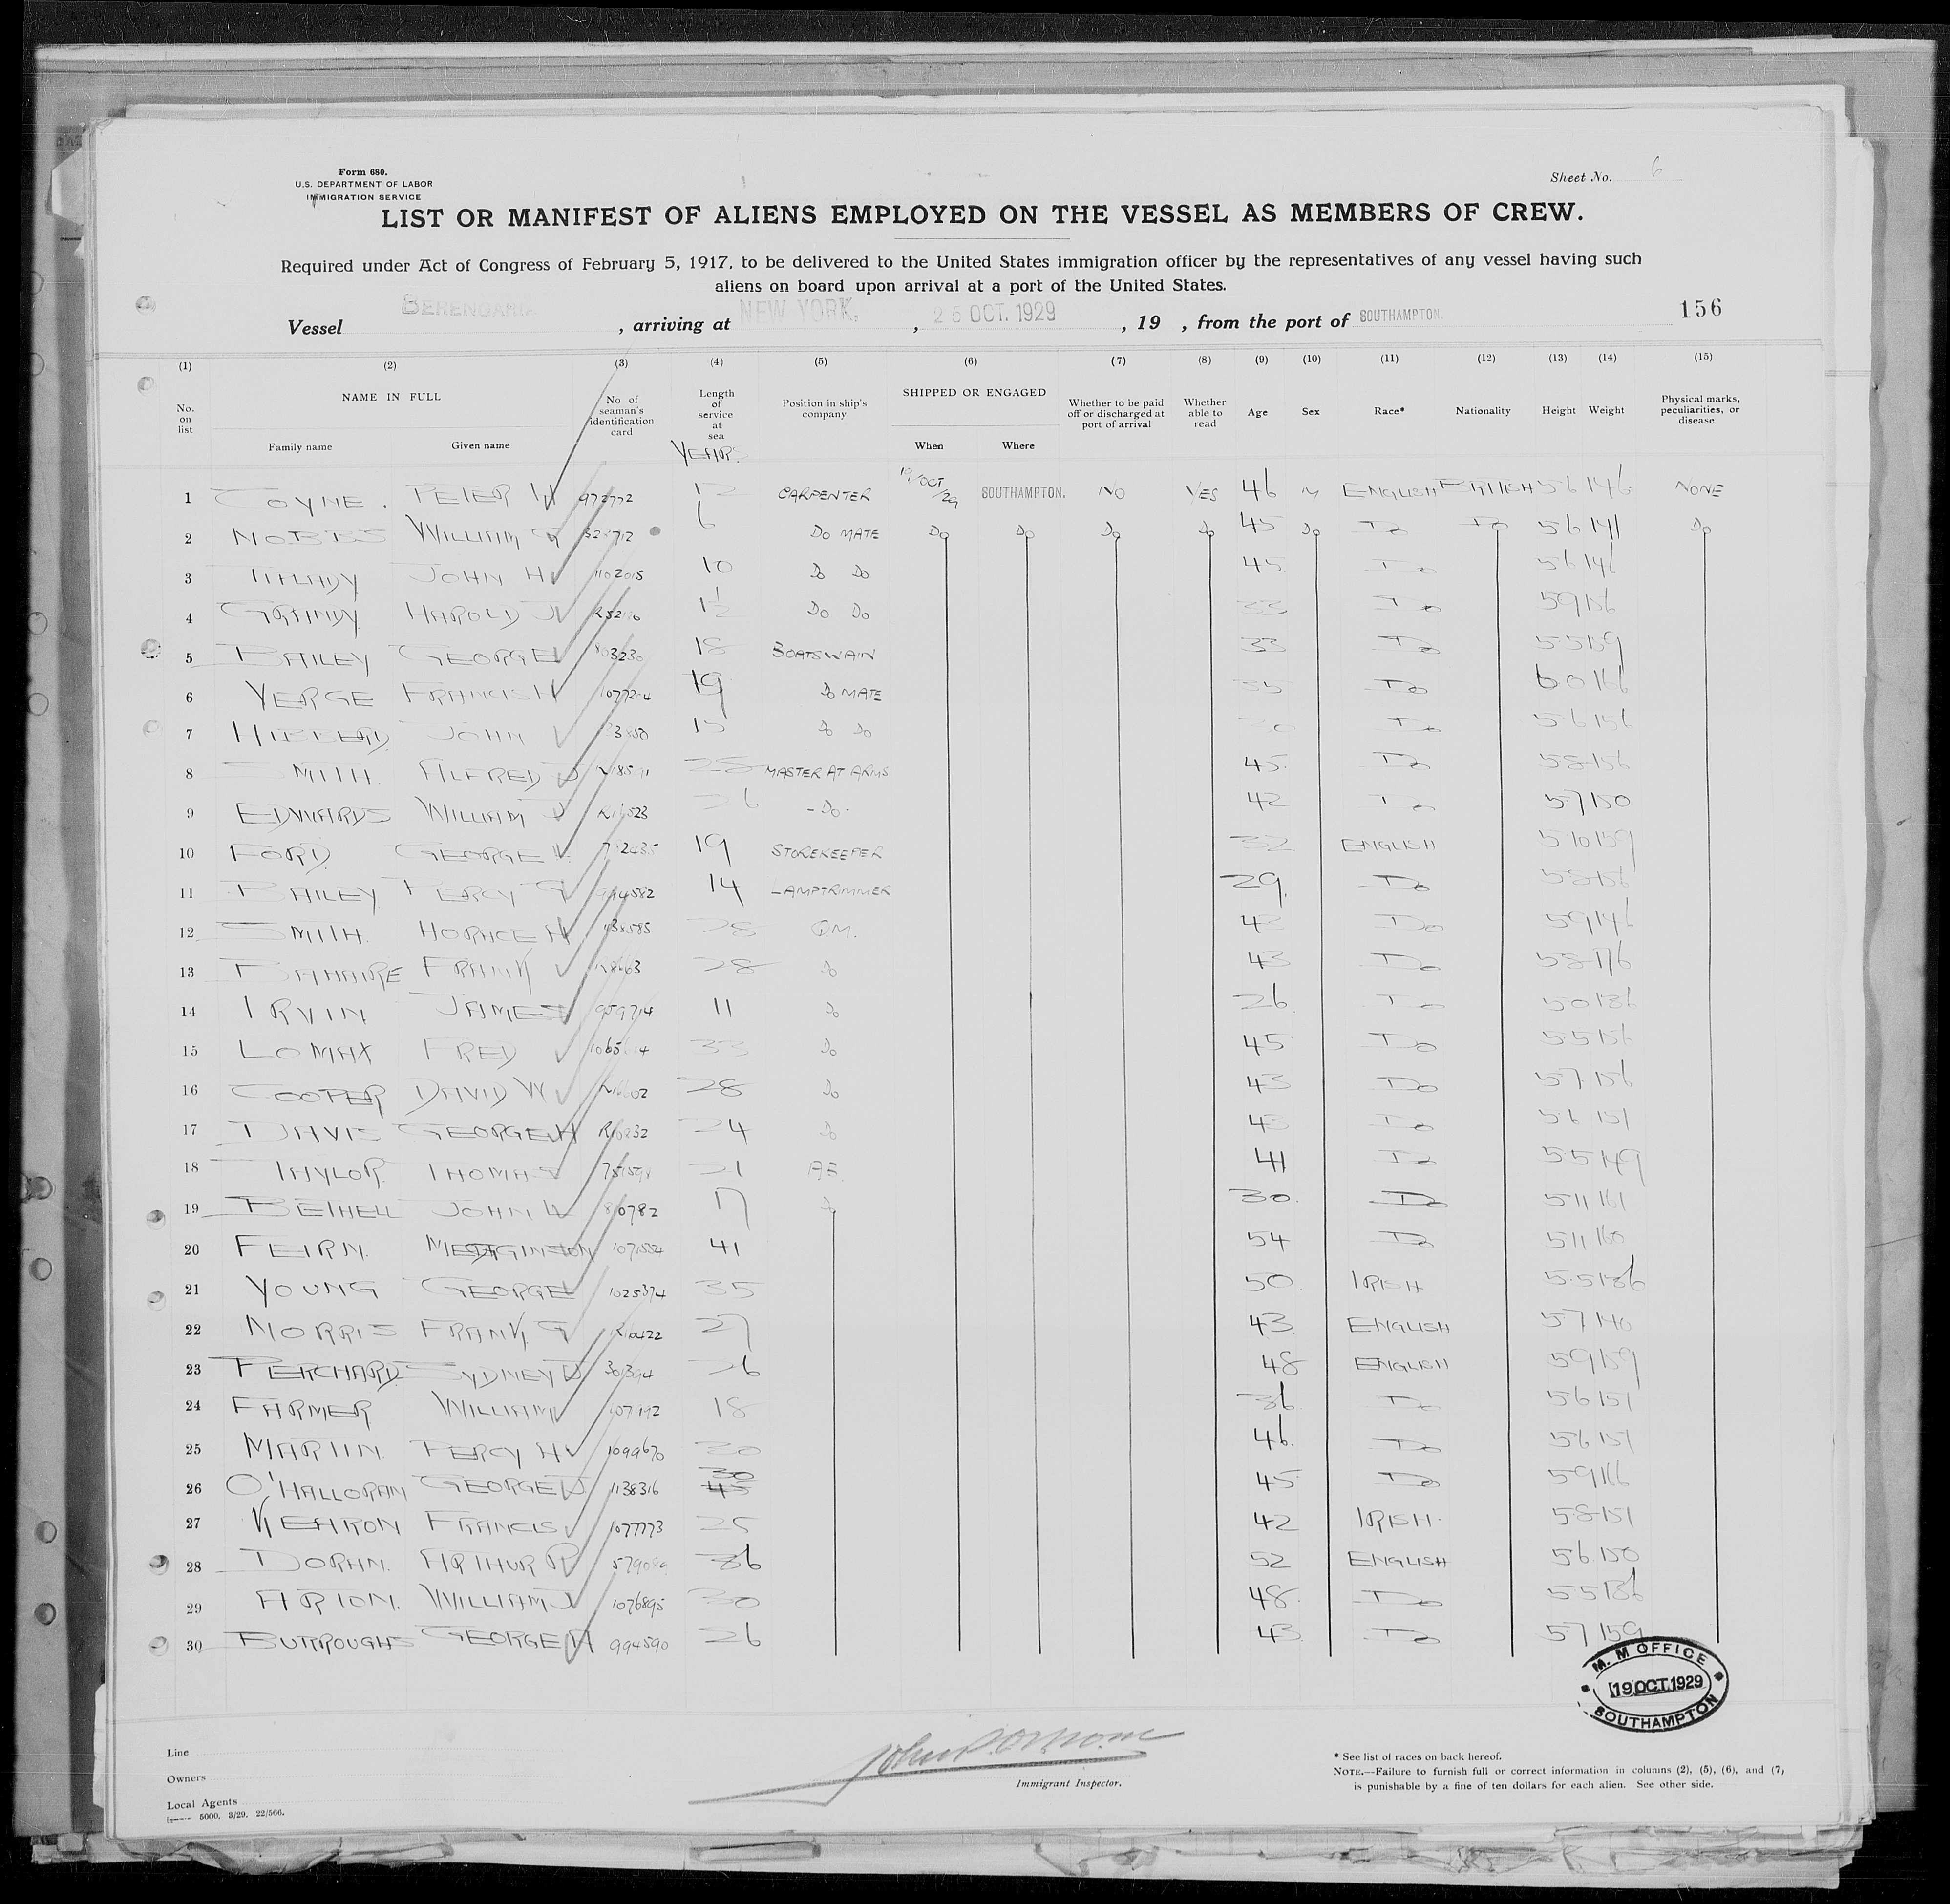 Form 680.
U.S. DEPARTMENT OF LABOR
IMMIGRATION SERVICE
Sheet No. 6
LIST OR MANIFEST OF ALIENS EMPLOYED ON THE VESSEL AS MEMBERS OF CREW.
Required under Act of Congress of February 5, 1917, to be delivered to the United States immigration officer by the representatives of any vessel having such
aliens on board upon arrival at a port of the United States.
Vessel BERENGARIA, arriving at NEW YORK, 25 OCT. 1929, 19 , from the port of SOUTHAMPTON. 156
(1) (2) (3) (4) (5) (6) (7) (8) (9) (10) (11) (12) (13) (14) (15)
No. on list NAME IN FULL Family name Given name No of seaman's identification card Length of service at sea YEARS Position in ship's company SHIPPED OR ENGAGED When Where Whether to be paid off or discharged at port of arrival Whether able to read Age Sex Race* Nationality Height Weight Physical marks, peculiarities, or disease
1 COYNE. PETER W 972772 12 CARPENTER 19/OCT/29 SOUTHAMPTON. NO YES 46 M ENGLISH BRITISH 5 6 146 NONE
2 NOBBS WILLIAM G 6 Do MATE Do Do Do Do 45 Do Do Do 5 6 141 Do
3 JOHN H 1102015 10 Do Do 45 Do 5 6 146
4 GRANDY HAROLD J Do Do 33 Do 5 9 156
5 BAILEY GEORGE 803230 18 BOATSWAIN 33 Do 5 5 159
6 YERGE FRANCIS H 19 Do MATE 35 Do 6 0 166
7 HIBBERD JOHN 15 Do Do Do 5 6 156
8 SMITH ALFRED J 28 MASTER AT ARMS 45 Do 5 8 156
9 EDWARDS WILLIAM J 26 - Do - 42 Do 5 7 150
10 FORD GEORGE 19 STOREKEEPER 32 ENGLISH 5 10 159
11 BAILEY PERCY G 994582 14 LAMPTRIMMER 29 Do 5 8 156
12 SMITH HORACE H 28 Q.M. 42 Do 5 9 146
13 FRANK 28 Do 43 Do 5 8 176
14 IRVIN JAMES 959714 11 Do 26 Do
15 LOMAX FRED 33 Do 45 Do 5 5 156
16 COOPER DAVID W 28 Do 43 Do 5 7 156
17 DAVIS GEORGE H 24 Do 43 Do 5 6 151
18 TAYLOR THOMAS 21 AB 41 Do 5 5 149
19 BETHELL JOHN W 17 Do 30 Do 5 11 161
20 FEIRN. 41 54 Do 5 11 160
21 YOUNG GEORGE 1025374 35 50 IRISH 5 5 136
22 MORRIS FRANK G R10422 27 43 ENGLISH 5 7 140
23 PERCHARD SYDNEY 26 48 ENGLISH 5 9 159
24 FARMER WILLIAM 18 36 Do 5 6 151
25 MARTIN PERCY H 1099670 30 46 Do 5 6 151
26 O'HALLORAN GEORGE J 1138316 30 45 45 Do 5 9 166
27 KEARON FRANCIS 1077773 25 42 IRISH 5 8 151
28 DORAN. ARTHUR R 36 52 ENGLISH 5 6 150
29 ARTON. WILLIAM J 1076895 30 48 Do 5 5 136
30 BURROUGHS GEORGE H 994590 26 43 Do 5 7 159
M. M OFFICE
19 OCT. 1929
SOUTHAMPTON
Line
Owners
Local Agents
5000. 3/29. 22/566.
Immigrant Inspector.
* See list of races on back hereof.
NOTE.—Failure to furnish full or correct information in columns (2), (5), (6), and (7),
is punishable by a fine of ten dollars for each alien. See other side.